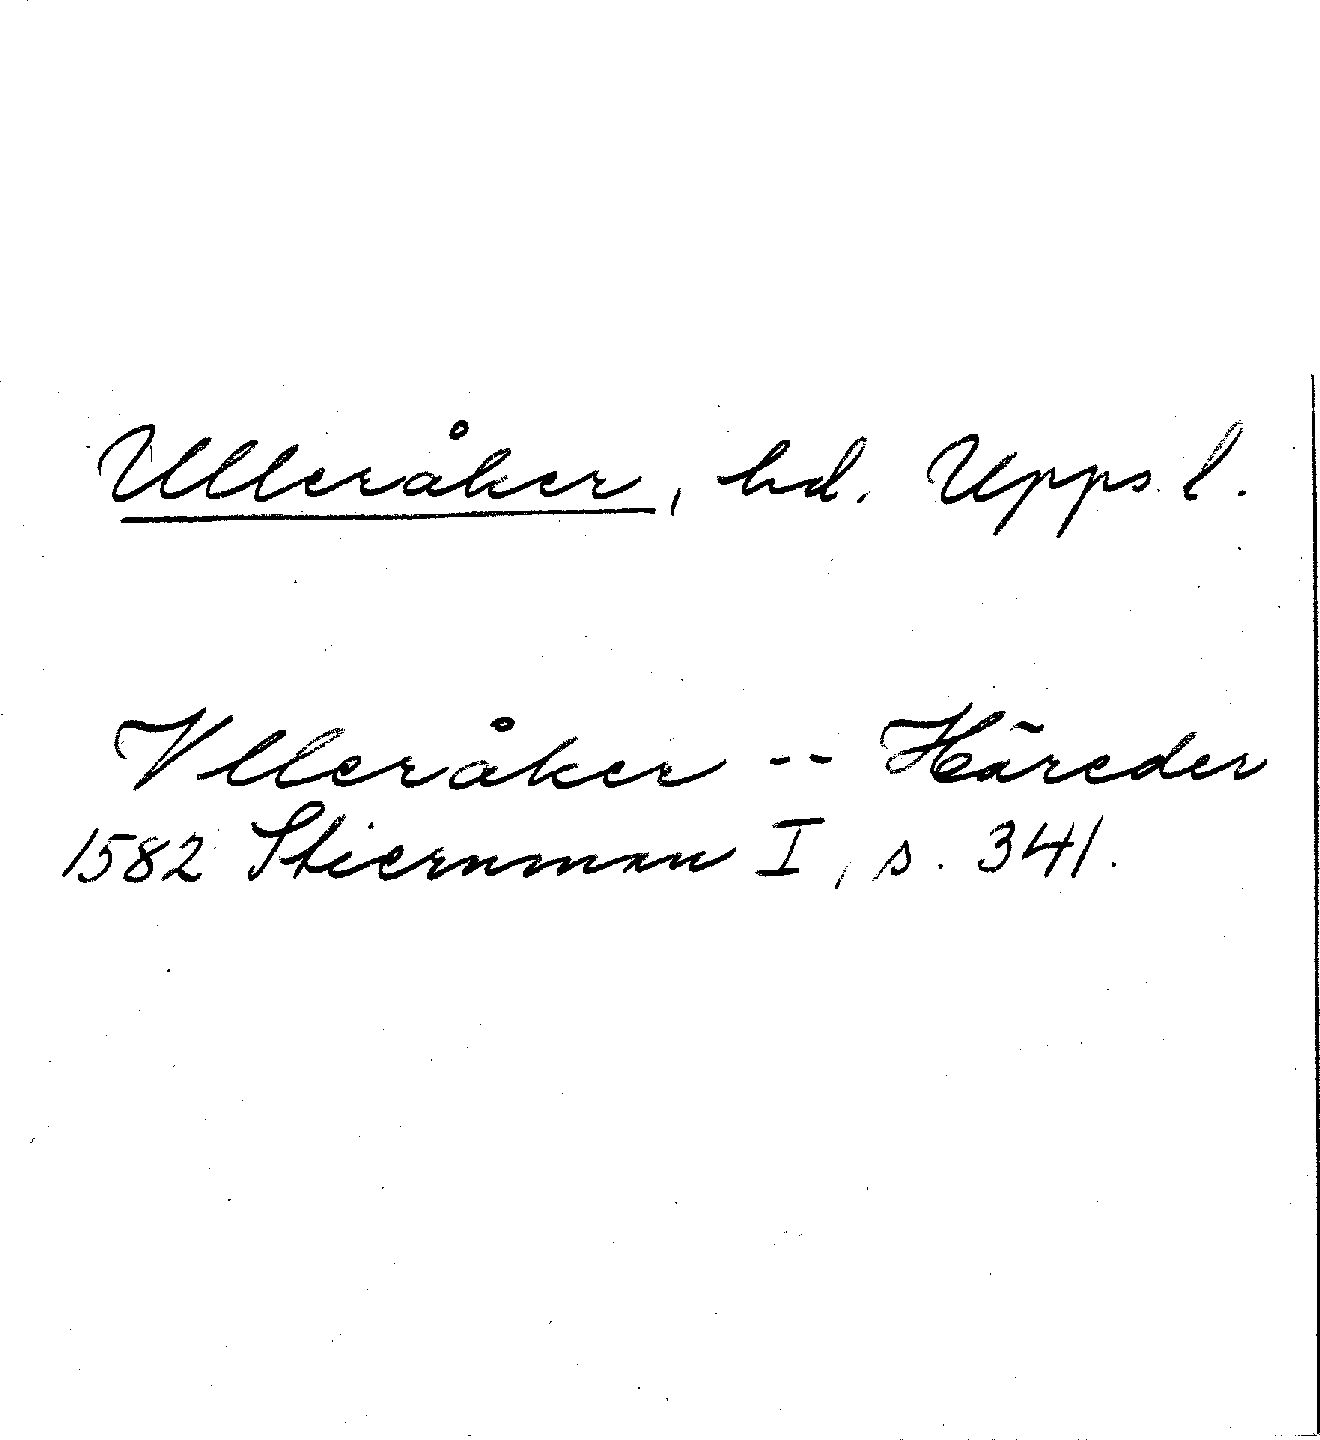 Ulleråker, hd. Upps. l.
Vlleråker -- Häreder
1582 Stiernman I, s. 341.